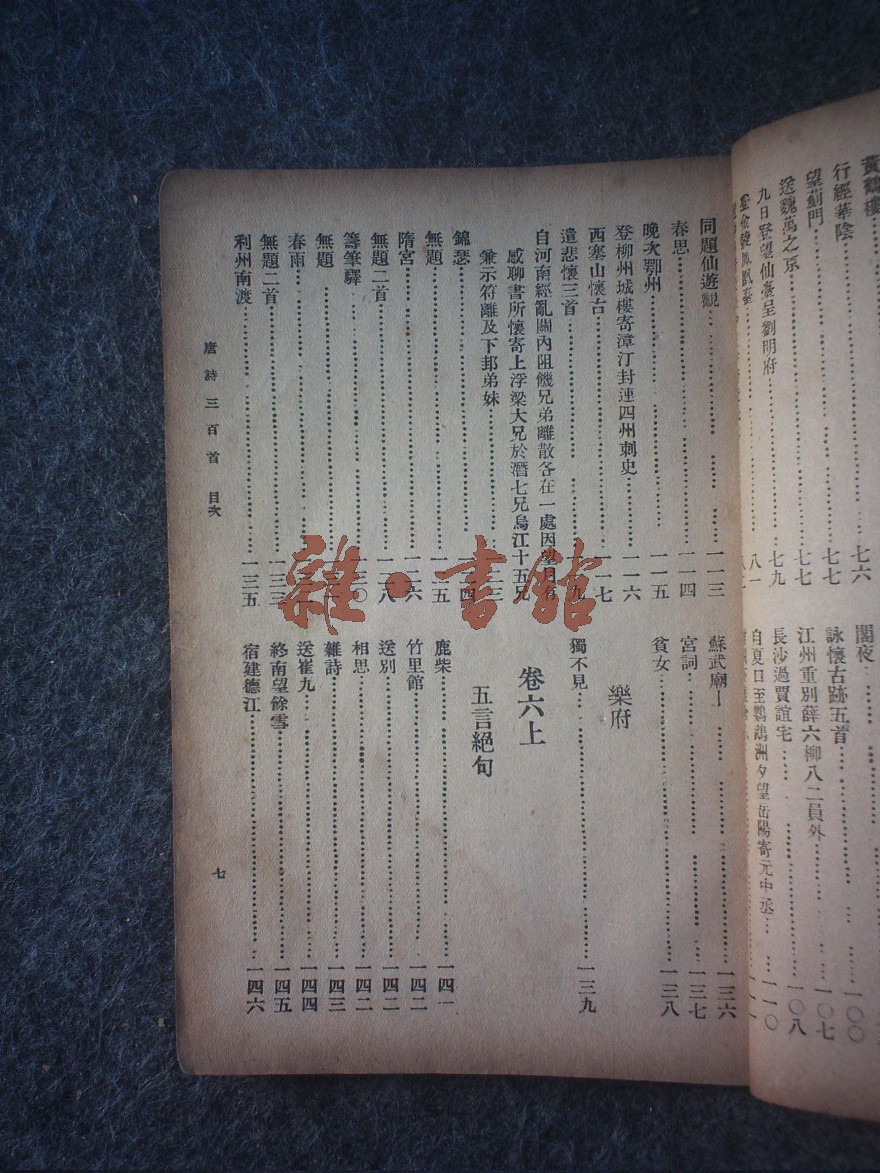 黃鶴樓
行經華陰
望薊門……七六
送魏萬之京……七七
九日登望仙臺呈劉明府……七九
閣夜
詠懷古跡五首……一〇〇
江州重別薛六柳八二員外……一〇七
長沙過賈誼宅……一〇八
自夏口至鸚鵡洲夕望岳陽寄元中丞……一一〇
同題仙遊觀……一一三
春思……一一四
晚次鄂州……一一五
登柳州城樓寄漳汀封連四州刺史……一一六
西塞山懷古……一一七
遣悲懷三首
自河南經亂關內阻饑兄弟離散各在一處因望月有
感聊書所懷寄上浮梁大兄於潛七兄烏江十五兄
兼示符離及下邽弟妹
錦瑟
無題
隋宮……一二六
無題二首
籌筆驛
無題
春雨
無題二首
利州南渡……一三五
蘇武廟……一三六
宮詞……一三七
貧女……一三八
樂府
獨不見……一三九
卷六上
五言絕句
鹿柴……一四一
竹里館……一四二
送別……一四二
相思……一四二
雜詩……一四三
送崔九……一四四
終南望餘雪……一四五
宿建德江……一四六
唐詩三百首 目次
七
雜·書館